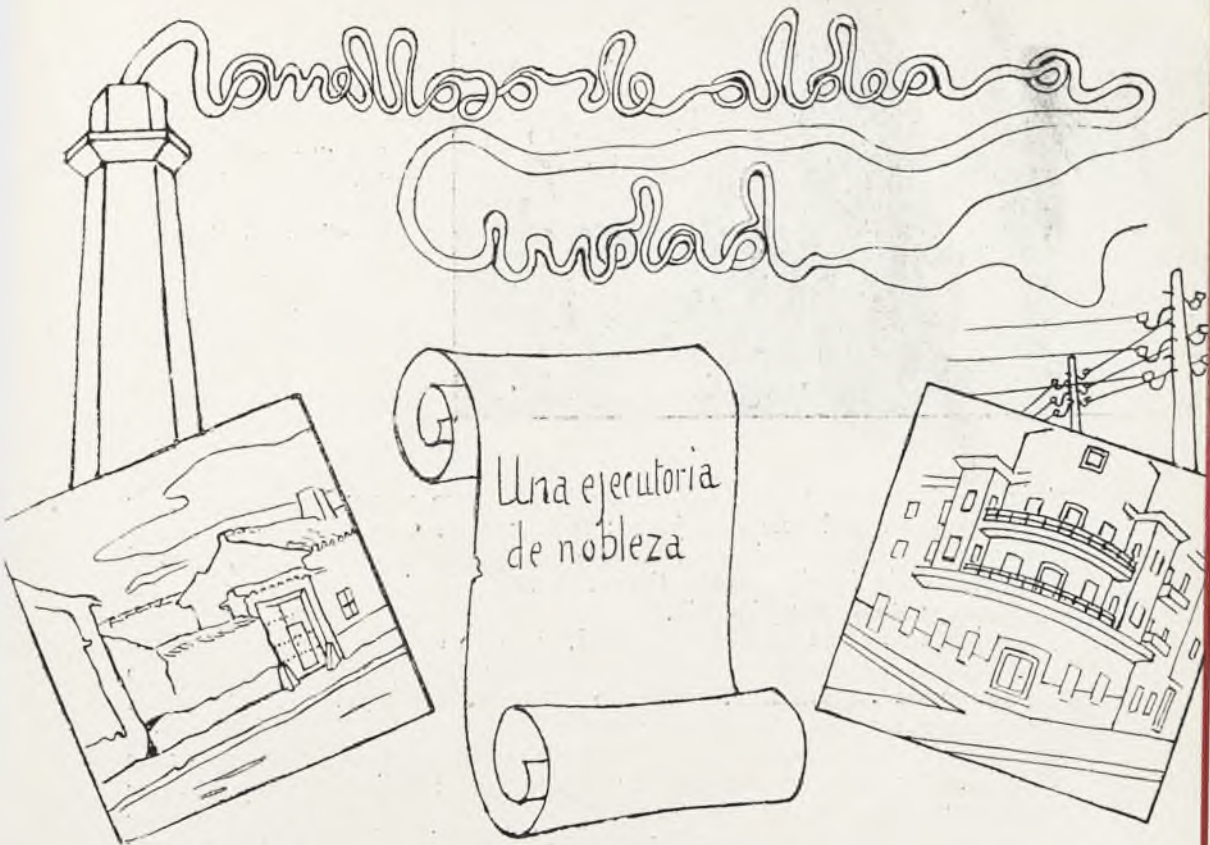 Tomelloso de aldea a
ciudad
Una ejecutoria
de nobleza